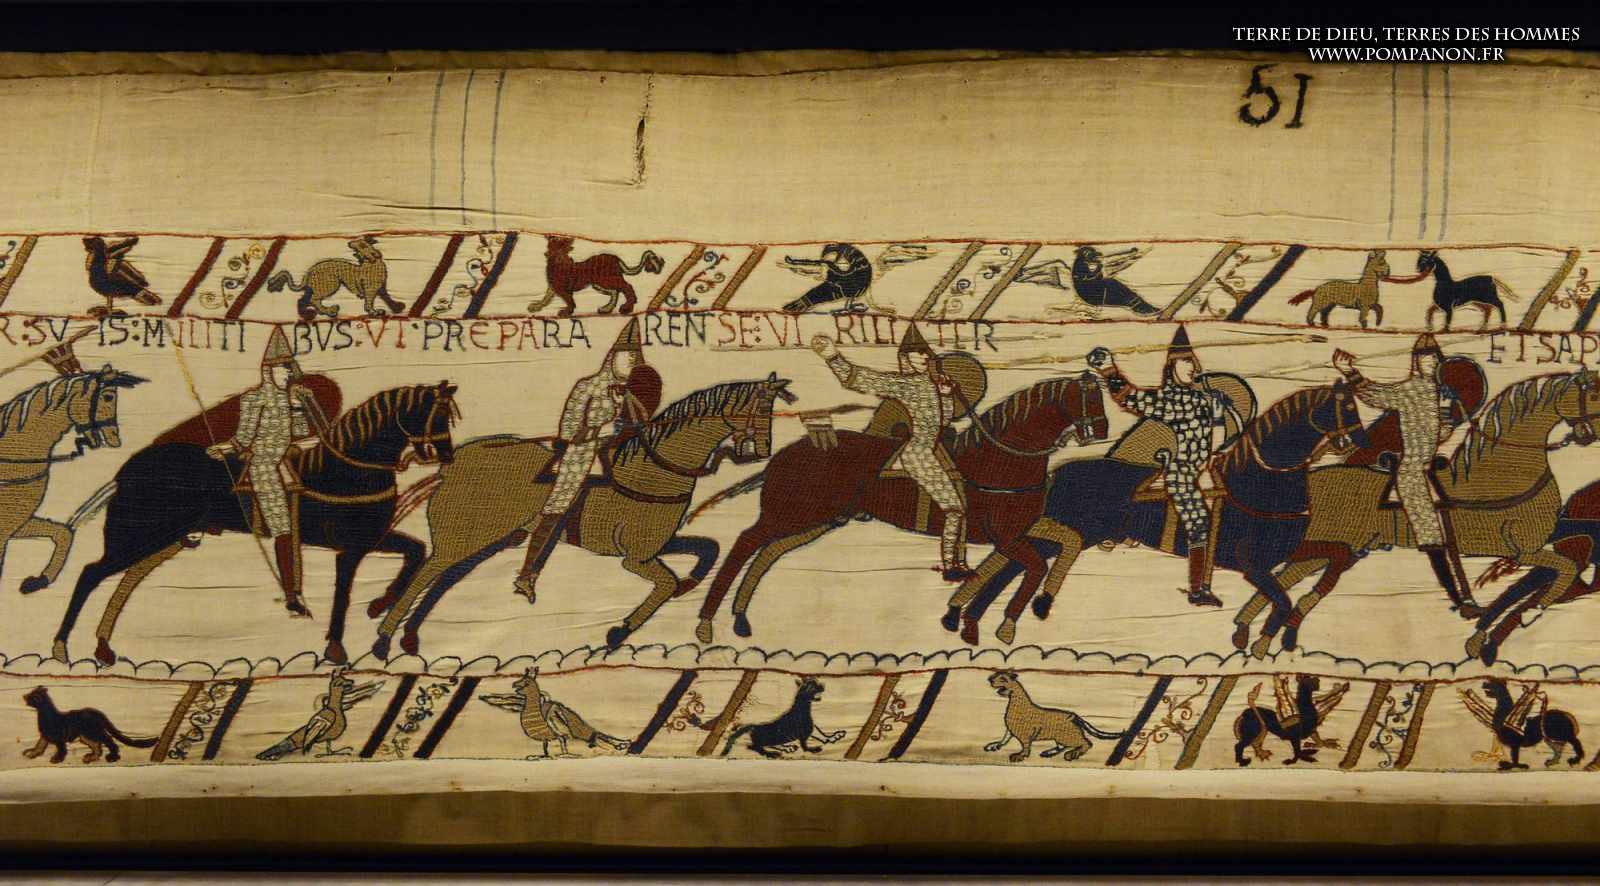 TERRE DE DIEU, TERRES DES HOMMES
WWW.POMPANON.FR
51
R:SVIS:MILITIBVS:VT·PREPARARENT SE:VIRILITER ET SAPI